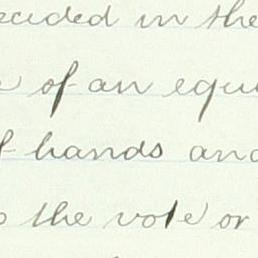 decided in the
of an equ
of hands and
the vote or